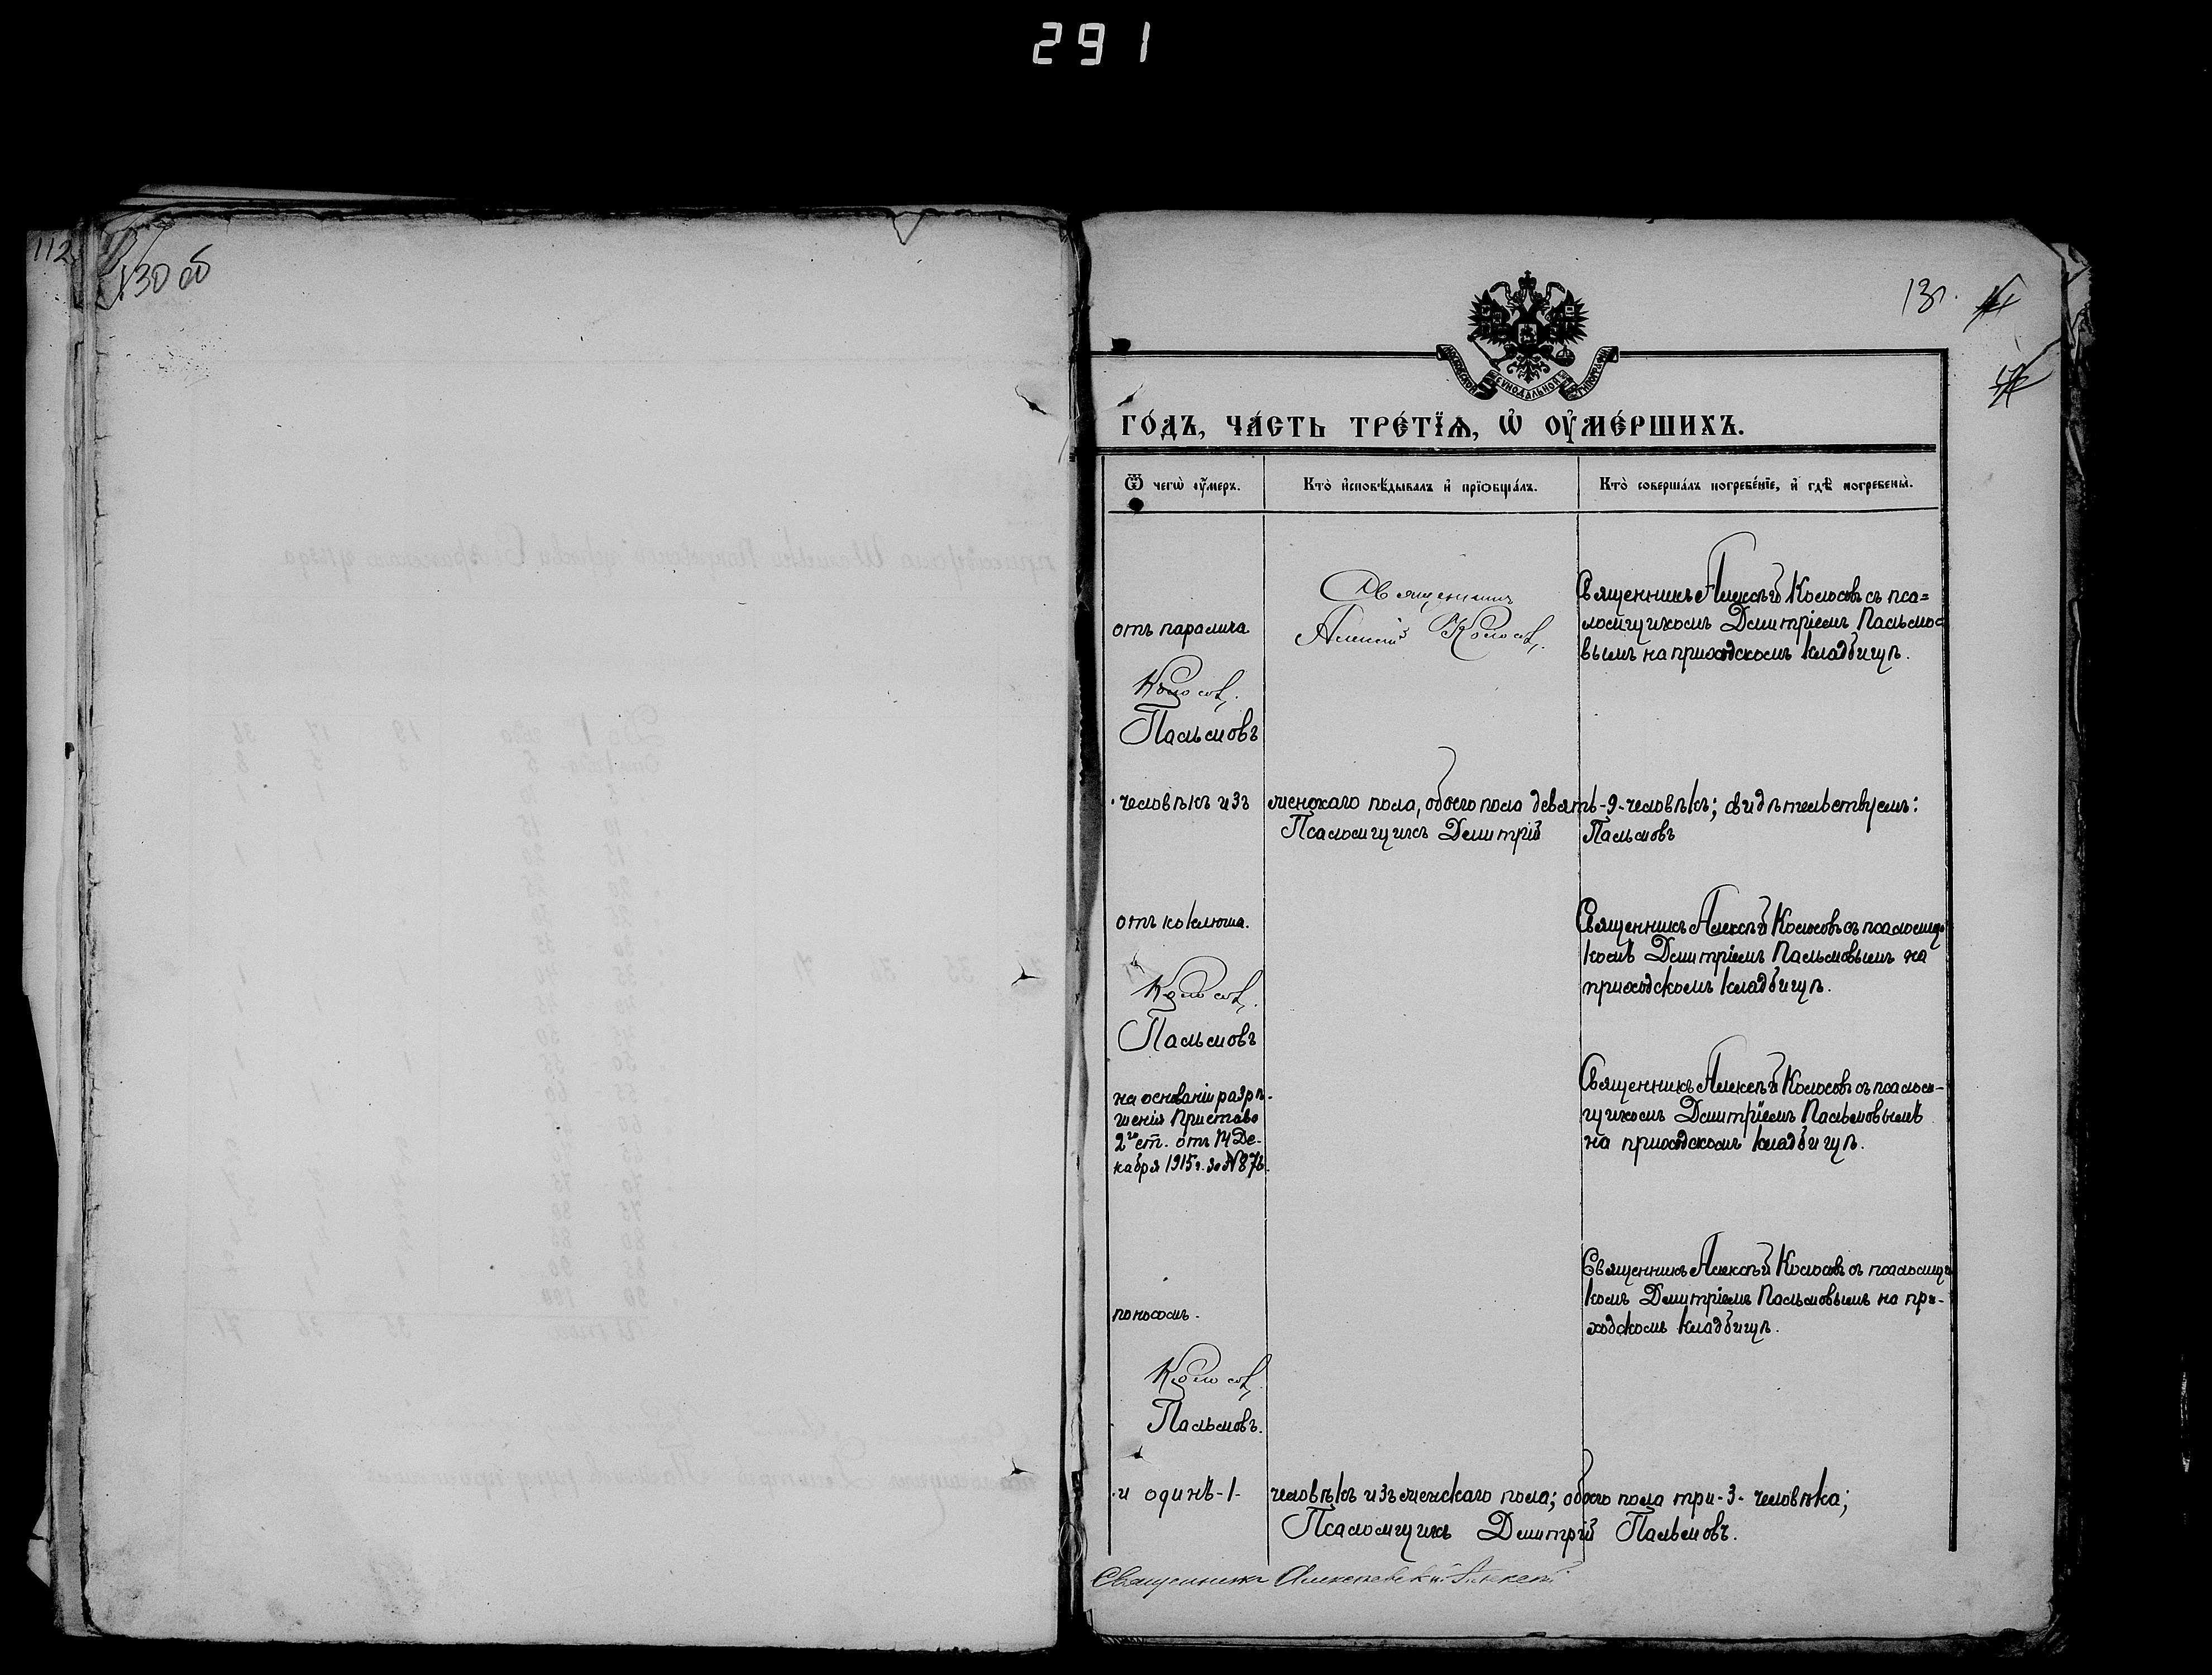 291
112
130 об
131.
МОСКОВСКОЙ СѴНОДАЛЬНОЙ ТИПОГРАФІИ
ГО́ДЪ, ЧА́СТЬ ТРЕ́ТЇѦ, Ѡ҆ ОУ҆МЕ́РШИХЪ.
Ѿ чегѡ̀ оу҆́меръ.
Кто̀ и҆сповѣ́дывалъ и҆ прїѡбща́лъ.
Кто̀ соверша́лъ погребе́нїе, и҆ гдѣ̀ погребены̀.
отъ паралича
Колосовъ.
Пальмовъ
Священникъ
Алексій Колосовъ.
Священникъ Алексѣй Колосовъ съ пса=
ломщикомъ Димитріемъ Пальмо=
вымъ на приходскомъ кладбищѣ.
человѣкъ изъ женскаго пола, обоего пола девять-9-человѣкъ; свидѣтельствуемъ:
Псаломщикъ Димитрій Пальмовъ
отъ коклюша.
Колосовъ.
Пальмовъ
Священникъ Алексѣй Колосовъ съ псаломщи-
комъ Димитріемъ Пальмовымъ на
приходскомъ кладбищѣ.
на основаніи разрѣ-
шенія Пристава
2го ст. отъ 14 Де-
кабря 1915 г. за №876.
Священникъ Алексѣй Колосовъ съ псалом-
щикомъ Димитріемъ Пальмовымъ
на приходскомъ кладбищѣ.
поносомъ.
Колосовъ.
Пальмовъ.
Священникъ Алексѣй Колосовъ съ псаломщи-
комъ Димитріемъ Пальмовымъ на при-
ходскомъ кладбищѣ.
и одинъ-1- человѣкъ изъ женскаго пола; обоего пола три-3- человѣка;
Псаломщикъ Димитрій Пальмовъ.
Священникъ Алексѣй